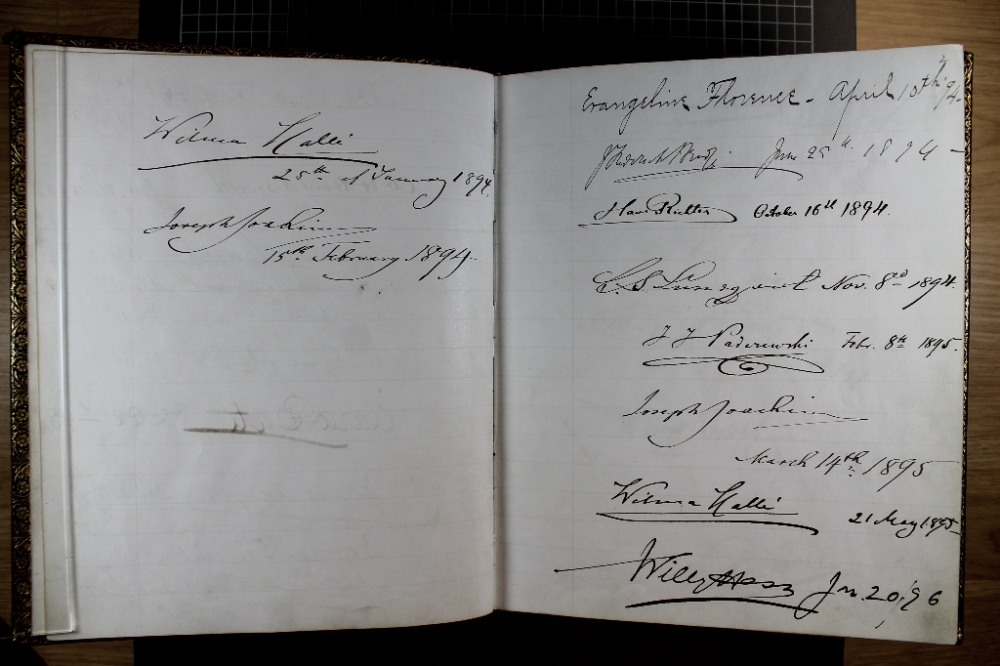 Wilma Hallé
25th of January 1894.
Joseph Joachim
15th February 1894.
Evangeline Florence - April 10th /94-
June 25th 1894 -
Hans Richter October 16th 1894.
C. S. Lundqvist Nov. 8th 1894.
I J Paderewski Febr. 8th 1895.
Joseph Joachim
March 14th 1895
Wilma Hallé
21 May 1895
Willy Hess Jn. 20, 96